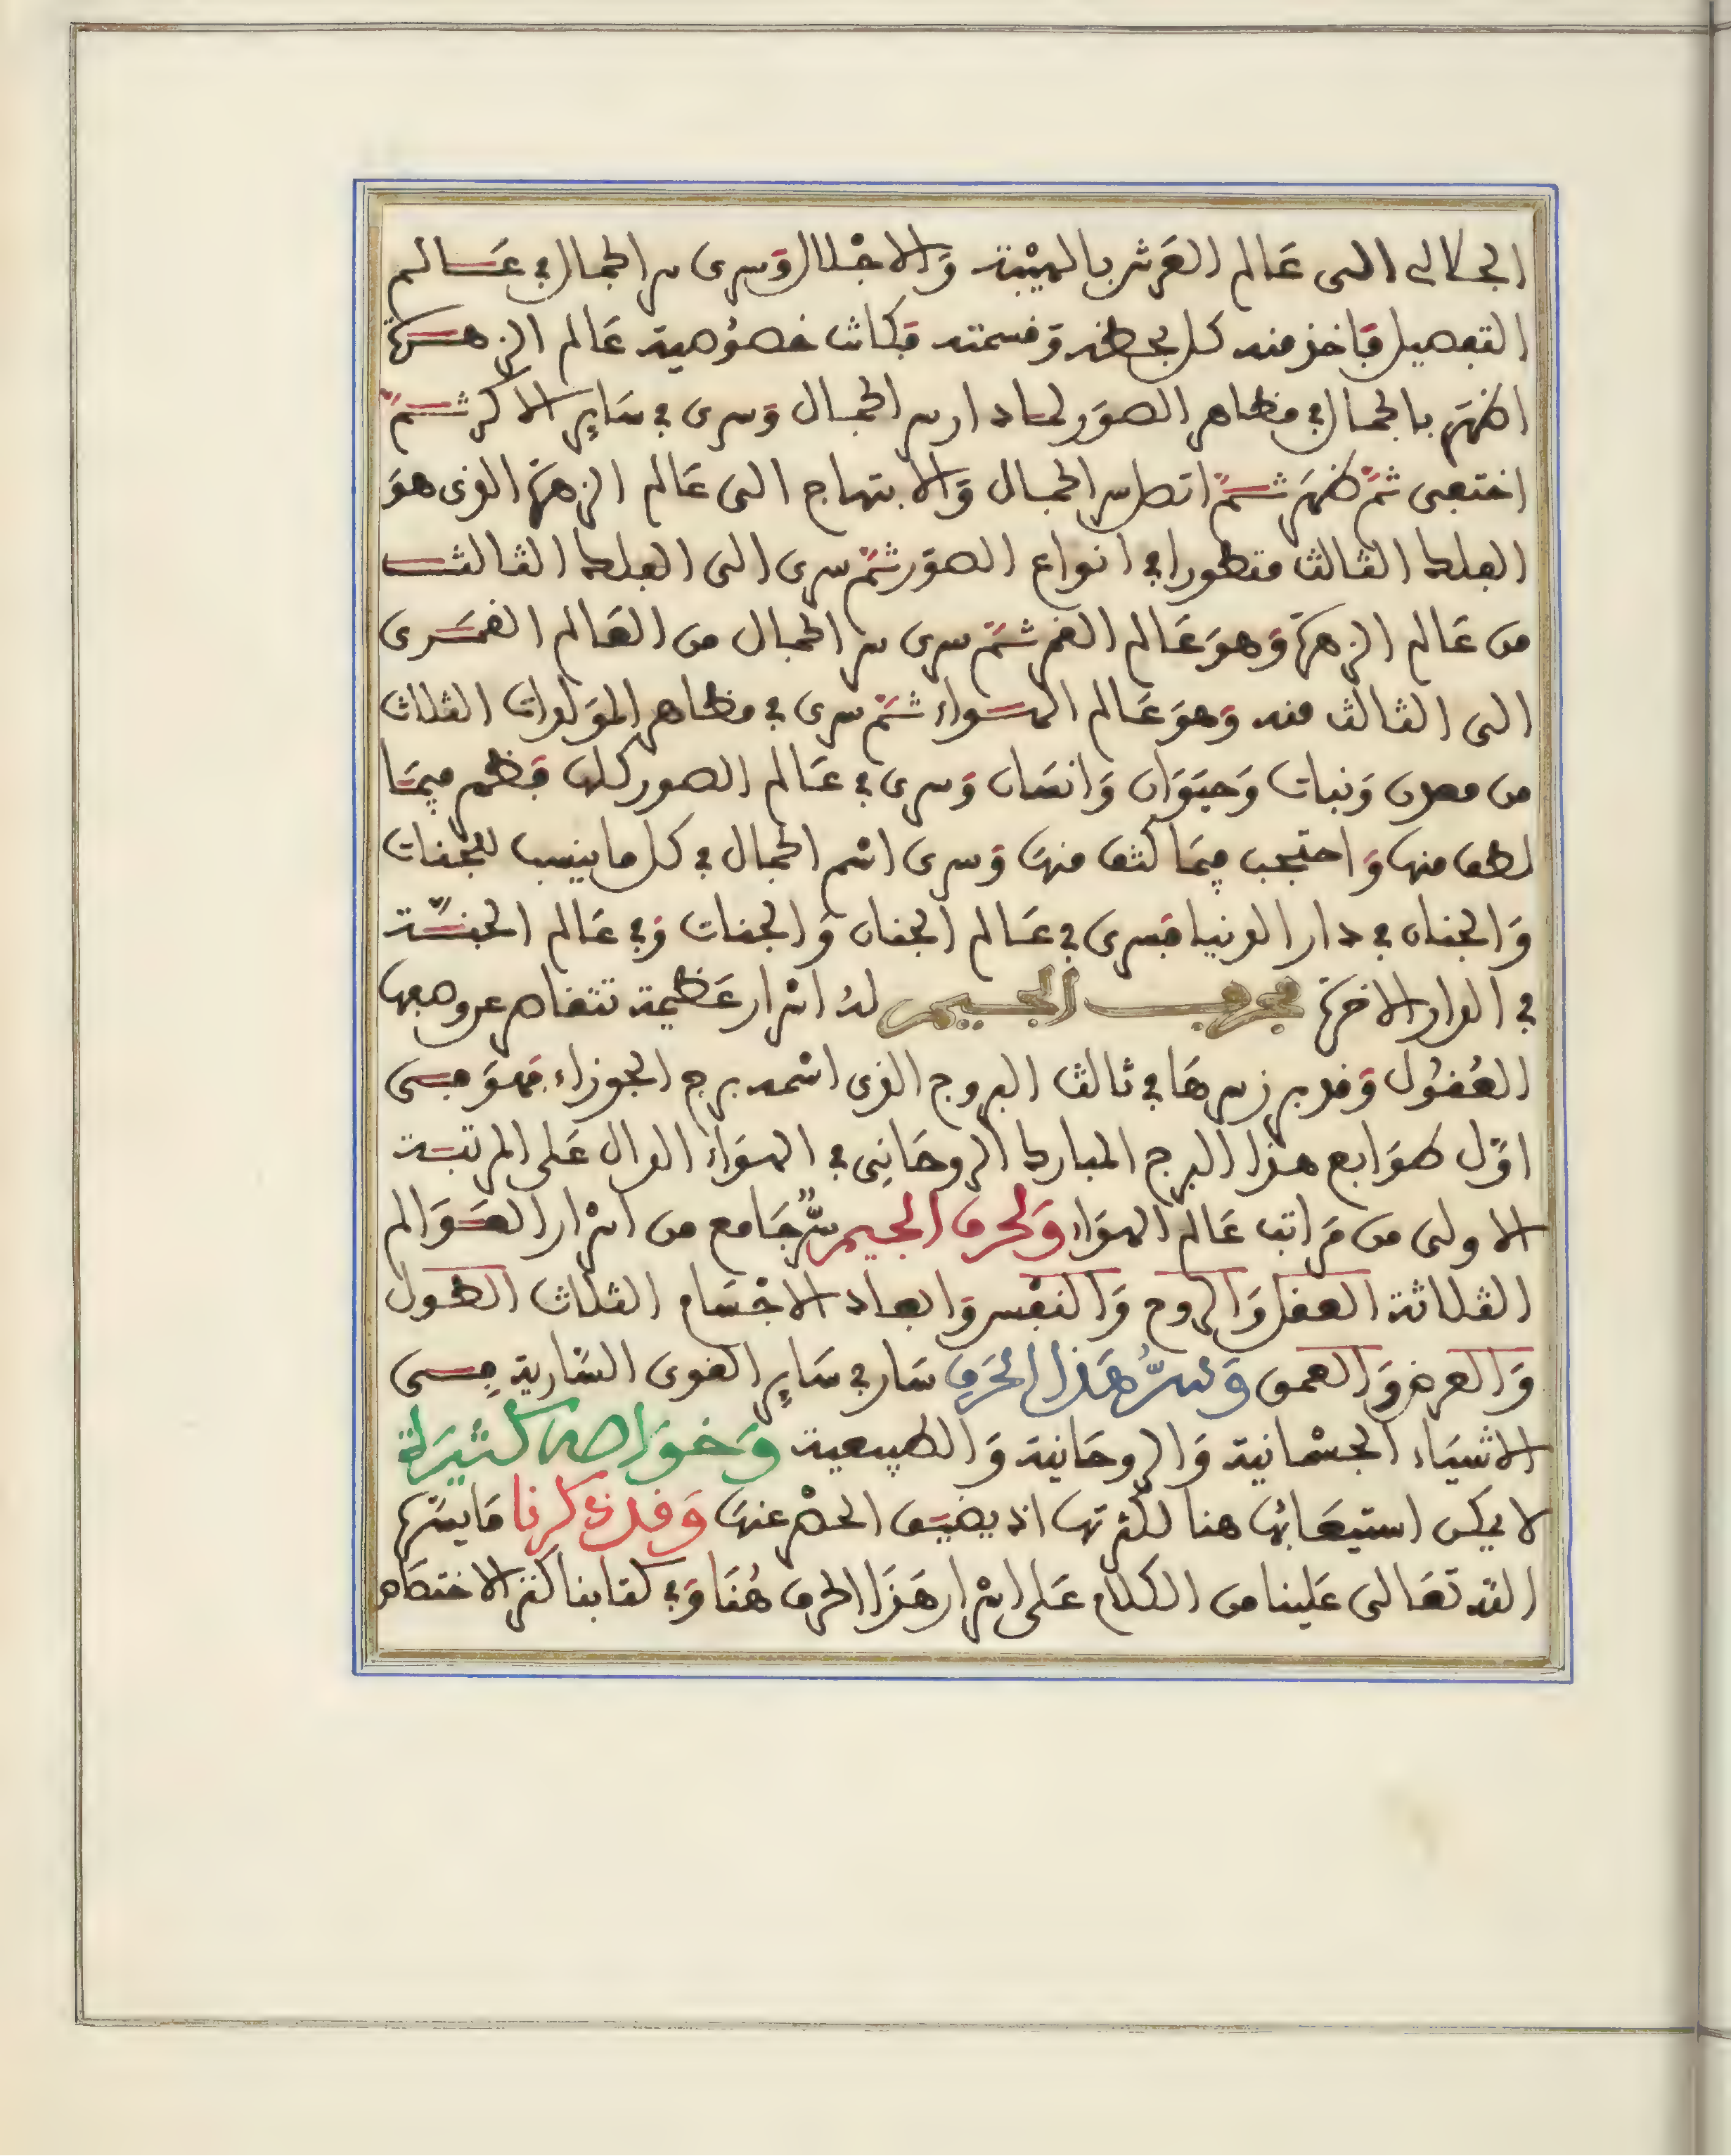 الجلالى الى عَالم العَرش بالهيْبة وَالاجْلال وَسرى سر الجمال في عَالم
التفصيل فَاخذ منه كل بحظه وَقسمته فكانت خصُوصية عَالم الزهرَة
اظهَر بالجمال في مظاهر الصوَر لما دار سر الجمال وَسرى في سَاير الاكر ثمَّ
اختفى ثمَّ ظهَر ثمَّ اتصل سر الجمال وَالابتهاج الى عَالم الزهرَة الذى هوَ
الفلك الثالث متطورا في انواع الصوَر ثمَّ سرى الى الفلك الثالث
من عَالم الزهرَة وَهوَ عَالم القمر ثمَّ سرى سر الجمال من العَالم القمَرى
الى الثالث منه وَهوَ عَالم الهواء ثمَّ سرى في مظاهر الموَلدات الثلاث
من معدن وَنبات وَحيَوَان وَانسَان وَسرى في عَالم الصور كلها فظهر فيمَا
لطف منها وَاحتجب فيمَا كثف منهَا وَسرى اسْم الجمال في كل ما ينسب للجنات
وَالجنان في دار الدنيا فسرى في عَالم الجنان وَالجنات وَفي عَالم الجنَّة
في الدار الاخرَة فحرف الجيم لهُ اسْرار عَظيمة تتقاصر عن وصفها
العُقُول وَقد برز سرهَا في ثالث البروج الذى اسْمه برج الجوزاء فهوَ فى
اوَّل طوَابع هذا البرج المبارك الروحَانِى في الهوَاء الدال عَلى المرتبَة
الاولى من مَراتب عَالم الهوَاء وَلحرف الجيم سرٌّ جَامع من اسْرار العَوَالم
الثلاثة العقل وَالروح وَالنفْس وَابعاد الاجْسَام الثلاث الطول
وَالعرض وَالعمق وَسرُّ هَذا الحَرف سَار في سَاير القوى السَّارية فِى
الاشيَاء الجسْمانية وَالروحَانية وَالطبيعية وَخوَاصه كثيرَة
لا يمكن استيعَابُها هنا لكثرتها اذ يضيَق الحصْر عنهَا وَقد ذكرنا مَا يسَّره
الله تعَالى عَلينا من الكلام عَلى اسْرار هَذا الحرف هُنَا وَفي كتابنا كنز الاختصَاص